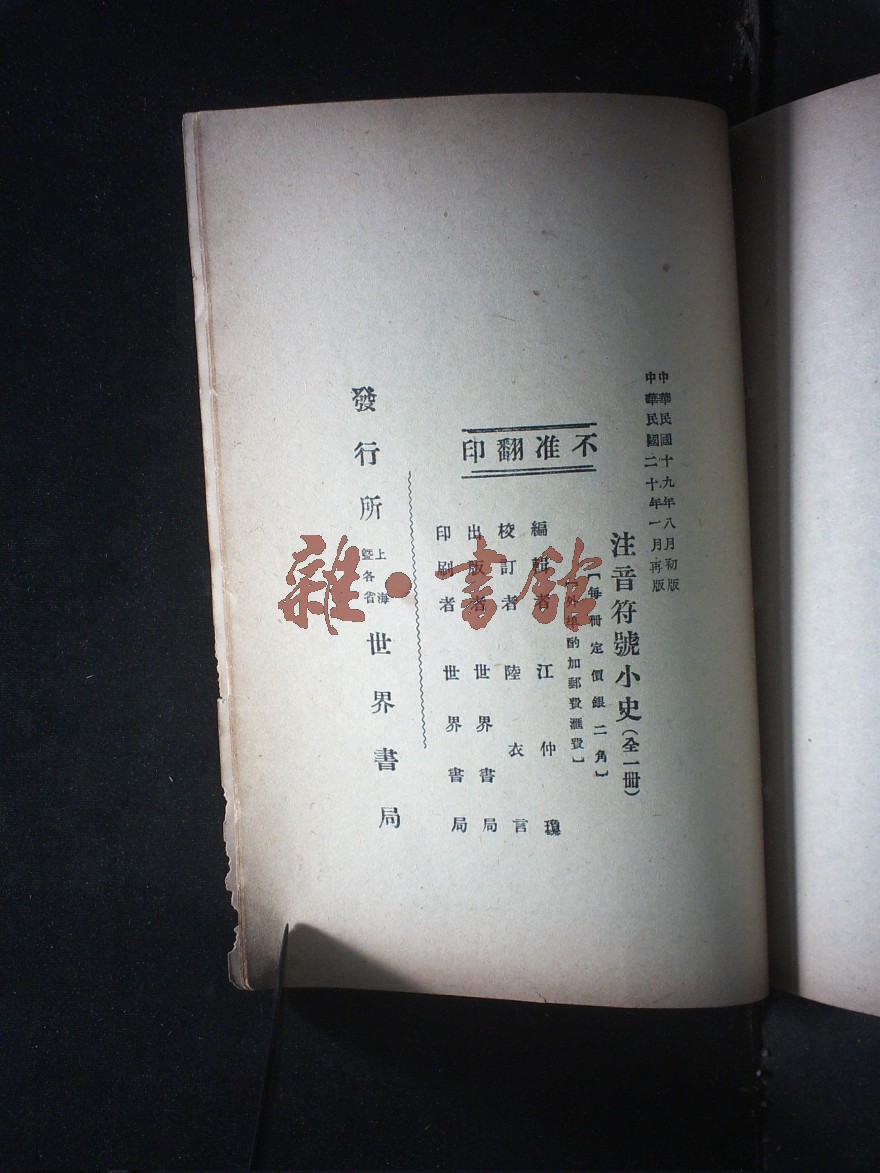 中華民國十九年八月初版
中華民國二十年一月再版
注音符號小史(全一冊)
【每冊定價銀二角】
【外埠酌加郵費滙費】
不准翻印
編輯者 江仲瓊
校訂者 陸衣言
出版者 世界書局
印刷者 世界書局
發行所 上海暨各省 世界書局
雜·書館